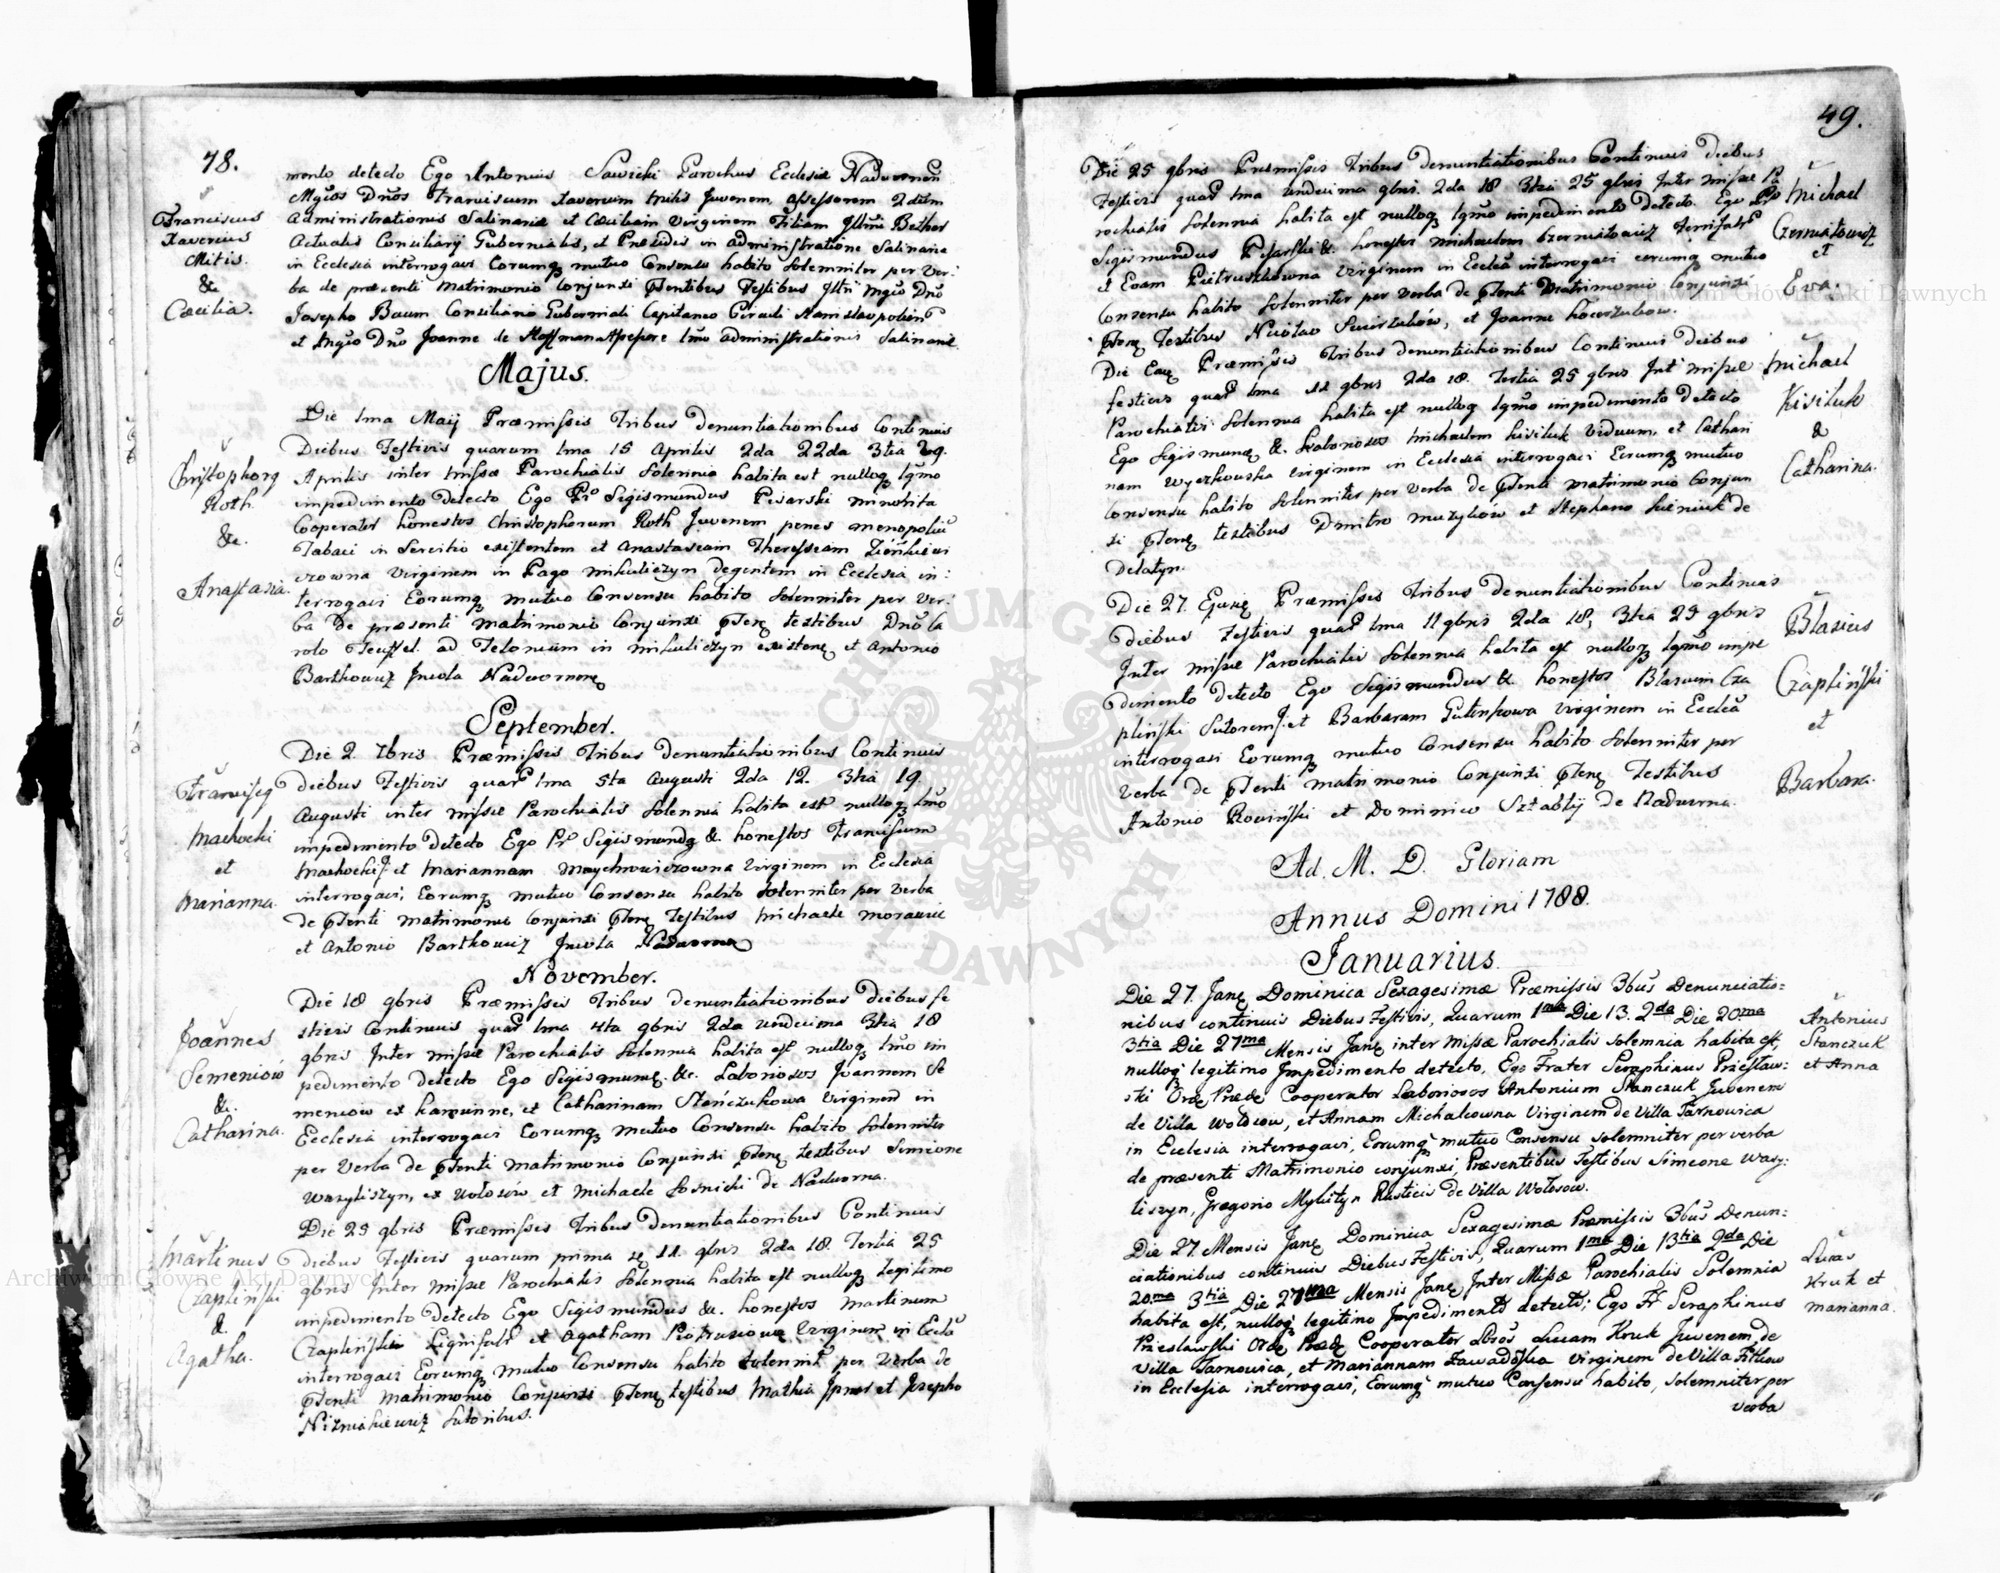 48.
Franciscus
Xaverius
Mitis.
&
Cæcilia.
mento detecto Ego Antonius Sawicki Parochus Ecclesiæ Nadvornen
Mgcos Dnos Franciscum Xaverium Mitis Juvenem, assessorem
Administrationis Salinariæ et Cæciliam Virginem Filiam Illmi
Actualis Consiliarij Gubernialis, et Præsidis in administratione Salinaria
in Ecclesia interrogavi Eorumq mutuo Consensu habito Solemniter per Ver:
ba de præsenti Matrimonio Conjunxi ptentibus Testibus Illri Mgco Dno
Josepho Baum Consiliario Guberniali Capitaneo Circuli Stanislaopolien
et Mgco Dno Joanne de Hoffman Assessore administrationis Salinariæ.
Majus.
Christophorq
Roth
&.
Anastasia.
Die 1ma Maij Præmissis Tribus denuntiationibus Continuis
Diebus Festivis quarum 1ma 15 Aprilis 2da 22da 3tia 29.
Aprilis inter Missæ Parochialis Solennia habita est nulloq lgmo
impedimento detecto Ego Fr Sigismundus Pisarski Minorita
Cooperator honestos Christophorum Roth Juvenem penes monopoliu
Tabaci in Servitio existentem et Anastasiam Theressiam
czowna Virginem in Pago Mikuliczyn degentem in Ecclesia in:
terrogavi Eorumq mutuo Consensu habito Solemniter per Ver:
ba de præsenti Matrimonio Conjunxi ptenq testibus Dno Ca
rolo Teuffel ad Telonium in Mikuliczyn existenq et Antonio
Barthowicz Incola Nadvornenq
September.
Franciscq
Machocki
et
Marianna.
Die 2. 7bris Præmissis Tribus denuntiationibus Continuis
diebus Festivis quar 1ma 5ta Augusti 2da 12. 3tia 19.
Augusti inter Missæ Parochialis Solennia habita est nulloq lgmo
impedimento detecto Ego Fr Sigismundq &. honestos Franciscum
Machocki J. et Mariannam Maychrowiczowna Virginem in Ecclesia
interrogavi, Eorumq mutuo Consensu habito Solemniter per Verba
de ptenti Matrimonio Conjunxi ptenq Testibus Michaele Morawic
et Antonio Barthowicz Incola Nadworna
November.
Joannes
Semeniow
&.
Catharina.
Die 18 9bris Præmissis Tribus denuntiationibus diebus fe
stivis Continuis quar 1ma 4ta 9bris 2da undecima 3tia 18
9bris Inter Missæ Parochialis Solennia habita est nulloq lgmo im
pedimento detecto Ego Sigismunq. &c. Laboriosos Joannem Se
meniow ex et Catharinam Stenczukowa Virginem in
Ecclesia interrogavi Eorumq mutuo Consensu habito Solemniter
per Verba de ptenti Matrimonio Conjunxi ptenq testibus Simeone
Wasyliszyn, ex Wolosow et Michaele Losnicki de Nadworna.
Martinus
Czapliński
&.
Agatha.
Die 25 9bris Præmissis Tribus Denuntiationibus Continuis
diebus Festivis quarum prima 11. 9bris 2da 18. Tertia 25
9bris Inter Missæ Parochialis Solennia habita est nulloq legitimo
impedimento detecto Ego Sigismundus &c. honestos Martinum
Czapliński et Agatham Piotrusiowa Virginem in Eccla
interrogavi Eorumq mutuo Consensu habito Solemnit per Verba de
ptenti Matrimonio Conjunxi ptenq testibus Mathia et Josepho
Nizniakiewicz Sutoribus.
49.
Die 25 9bris Præmissis Tribus denuntiationibus Continuis diebus
Festivis quar 1ma undecima 9bris. 2da 18 3tia 25 9bris Inter Missæ Pa
rochialis Solennia habita est nulloq lgmo impedimento detecto. Ego Fr
Sigismundus Pisarski &. honestos Michaelem Czerniatowicz
et Evam Pietruszkowna Virginem in Ecclia interrogavi eorumq mutuo
Consensu habito Solemniter per Verba de ptenti Matrimonio Conjunxi
ptenq Testibus Nicolao et Joanne
Michael
Czerniatowicz
et
Eva.
Die Eaq Præmissis Tribus denuntiationibus Continuis diebus
festivis quar 1ma 11 9bris 2da 18. Tertia 25 9bris Int Missæ
Parochialis Solennia habita est nulloq lgmo impedimento detecto
Ego Sigismunq &. Laboriosos Michaelem Kisiluk Viduum, et Cathari
nam Wyczkowska Virginem in Ecclesia interrogavi Eorumq mutuo
Consensu habito Solemniter per Verba de ptenti Matrimonio Conjun
xi ptenq testibus Dmitro Muzyków et Stephano de
Delatyn.
Michael
Kisiluk
&
Catharina.
Die 27. Ejusq Præmissis Tribus denuntiationibus Continuis
diebus Festivis quar 1ma 11 9bris 2da 18, 3tia 25 9bris
Inter Missæ Parochialis Solennia habita est nulloq lgmo impe
dimento detecto Ego Sigismundus &. honestos Blasium Cza
pliński Sutorem J. et Barbaram Virginem in Ecclia
interrogavi Eorumq mutuo Consensu habito Solemniter per
Verba de ptenti Matrimonio Conjunxi ptenq Testibus
Antonio Rowiński et Dominico de Nadworna.
Blasius
Czapliński
et
Barbara.
Ad. M. D. Gloriam
Annus Domini 1788.
Januarius.
Die 27. Janq Dominica Sexagesimæ Præmissis 3bus Denunciatio=
nibus continuis Diebus Festivis, Quarum 1ma Die 13. 2da Die 20ma
3tia Die 27ma Mensis Janq inter Missæ Parochialis Solemnia habita est,
nulloq legitimo Impedimento detecto, Ego Frater Seraphinus Przesław:
ski Ordq Prædq Cooperator Laboriosos Antonium Stanczuk Juvenem
de Villa Wolosow, et Annam Michalcowna Virginem de Villa Tarnowica
in Ecclesia interrogavi, Eorumq mutuo Consensu solemniter per verba
de præsenti Matrimonio conjunxi, Præsentibus Testibus Simeone Wasy:
liszyn, Gregorio Mykityn Rusticis de Villa Wolosow.
Antonius
Stanczuk
et Anna
Die 27. Mensis Janq Dominica Sexagesimæ Præmissis 3bus Denun:
ciationibus continuis Diebus Festivis, Quarum 1ma Die 13tia 2da Die
20ma 3tia Die 27ma Mensis Janq Inter Missæ Parochialis Solemnia
habita est, nulloq legitimo Impedimento detecto; Ego Fr Seraphinus
Przesławski Ordq Prædq Cooperator Lbros Lucam Kruk Juvenem de
Villa Tarnowica, et Mariannam Zawadoska Virginem de Villa
in Ecclesia interrogavi, Eorumq mutuo Consensu habito, solemniter per
verba
Lucas
Kruk et
Marianna.
Archiwum Główne Akt Dawnych
Archiwum Główne Akt Dawnych
ARCHIWUM GŁÓWNE AKT DAWNYCH